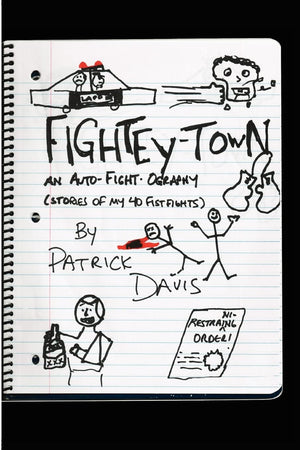 LAPD
FIGHTEY-TOWN
AN AUTO-FIGHT-OGRAPHY
(STORIES OF MY 40 FISTFIGHTS)
BY
PATRICK
DAVIS
XXX
NI-
RESTRAING
ORDER!